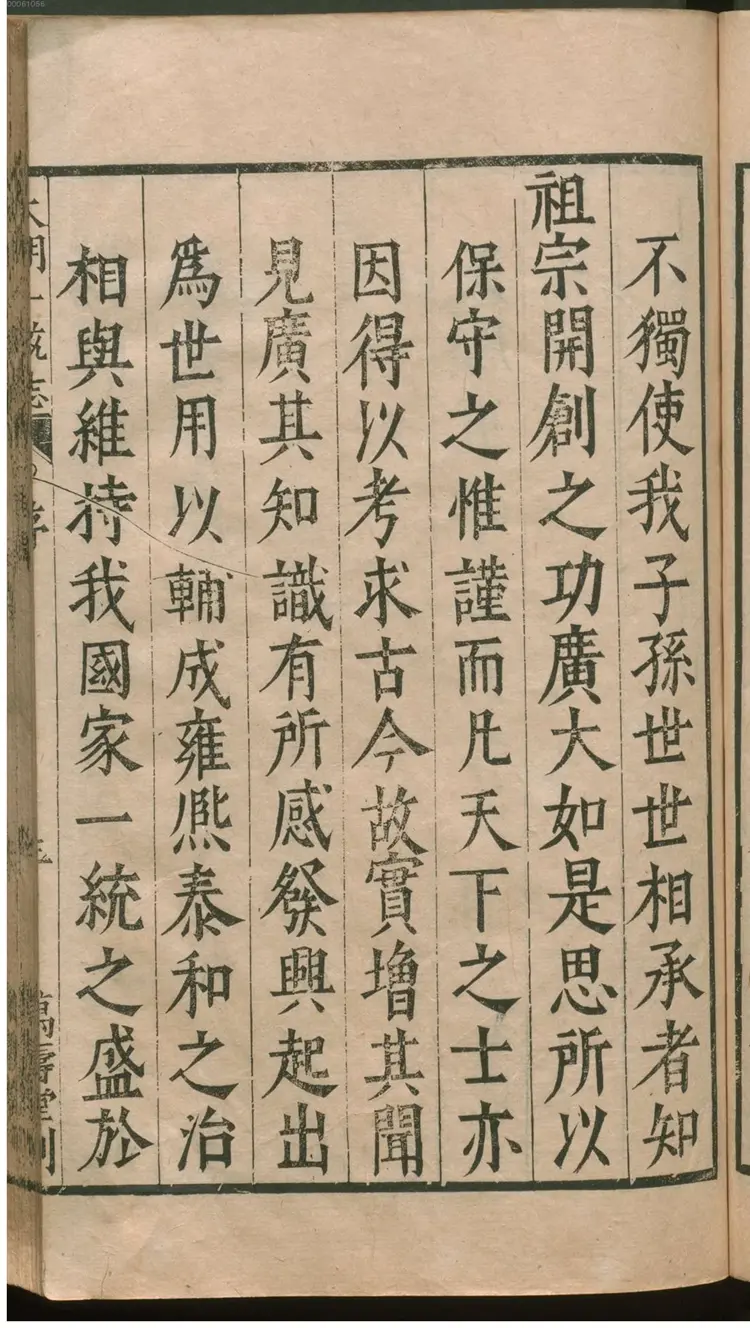 不獨使我子孫世世相承者知
祖宗開創之功廣大如是思所以
保守之惟謹而凡天下之士亦
因得以考求古今故實增其聞
見廣其知識有所感發興起出
爲世用以輔成雍熈泰和之治
相與維持我國家一統之盛於
大明一統志 序
三
萬壽堂刊
00061056